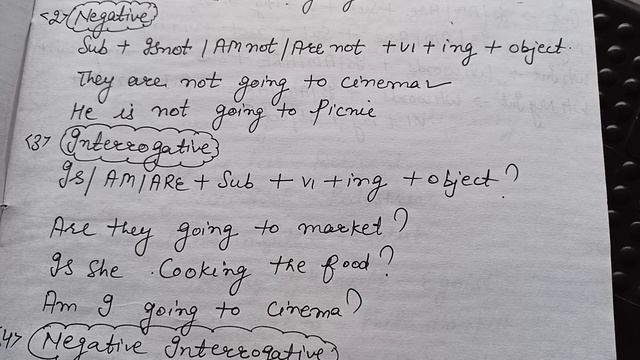 <2> Negative
Sub + Is not / AM not / Are not + V1 + ing + object.
They are not going to cinema
He is not going to Picnic
<3> Interrogative
Is / AM / ARE + Sub + V1 + ing + object?
Are they going to market?
Is She Cooking the food?
Am I going to cinema?
<4> Negative Interrogative